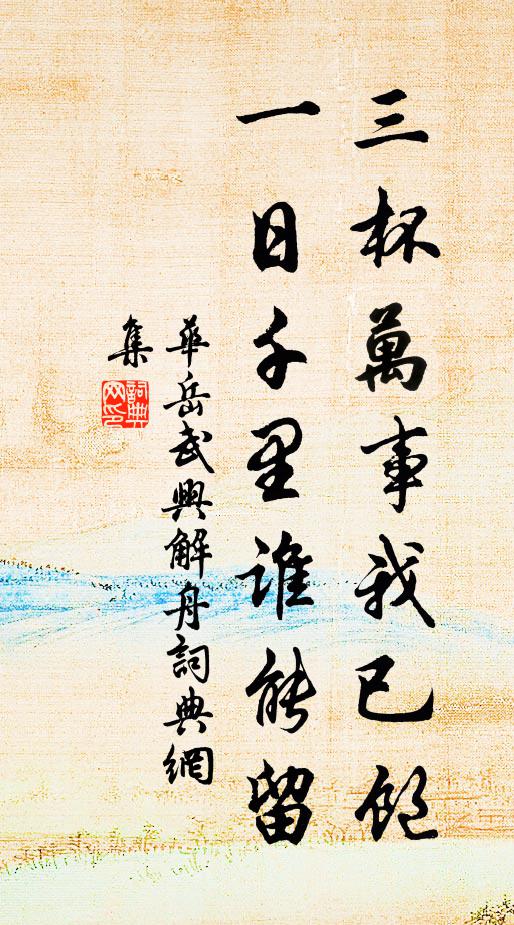 三杯萬事我已飽
一日千里誰能留
華岳武興解舟詞典網
集
詞典
网印